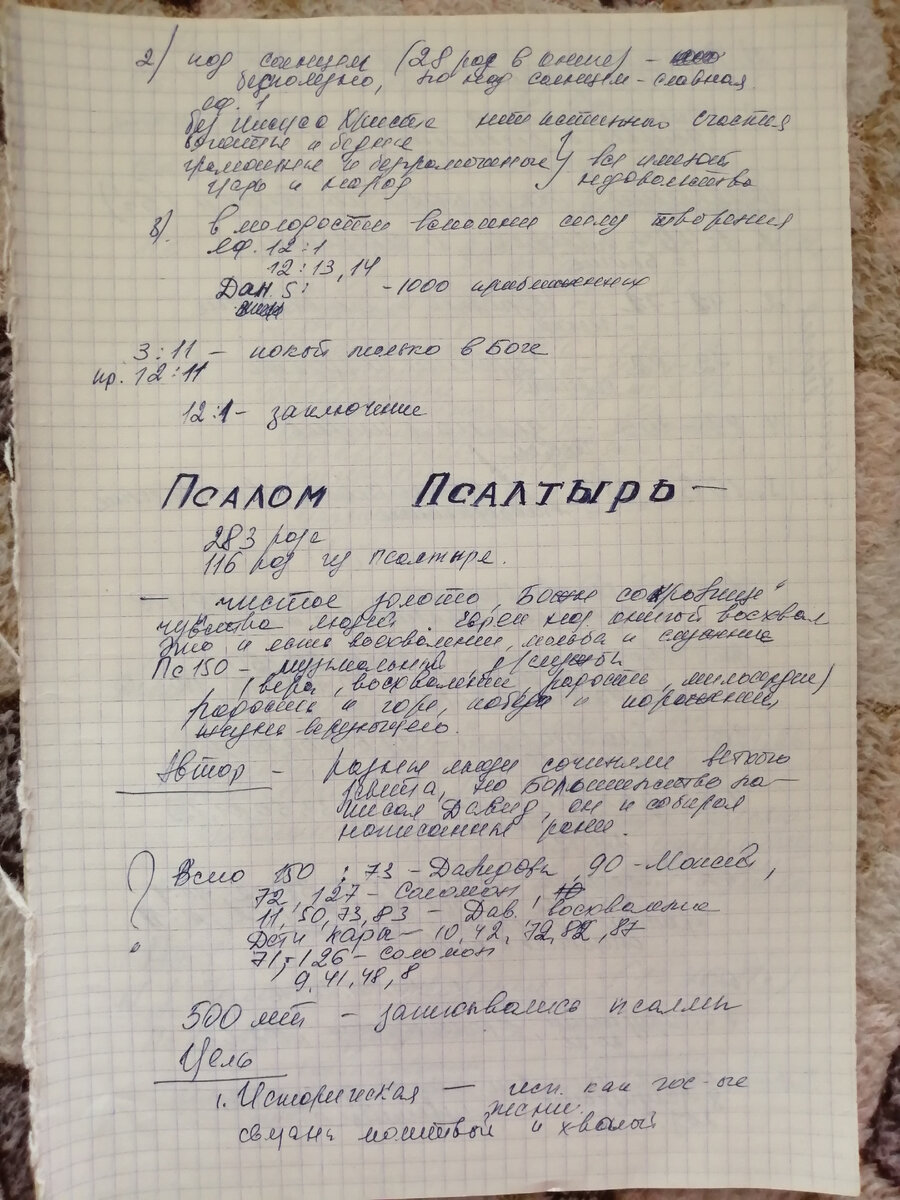 2) под солнцем (28 раз в книге) –
бесполезно, но над солнцем – славная.
еф. 1
без Иисуса Христа нет истинного счастья
богатые и бедные
грамотные и безграмотные } все имеют
царь и народ недовольство
8). в молодости вспомни силу творения
12:1
12:13,14
Дан. 5: – 1000 приближенных
3:11 – покой только в Боге
пр. 12:11
12:1 – заключение
Псалом Псалтырь –
283 раза
116 раз из псалтыря.
– чистое золото, Божие сокровище"
чувства людей
и лишь восхваление, мольба и служение
Пс 150 – музыкальный
(вера, восхваление, радость, милосердие)
радость и горе, победа и поражения,
жизнь верующего.
Автор – разные люди сочиняли ветхого
завета, но Большинство на-
писал Давид, он и собирал
написанные ранее.
? Всего 150 : 73 – Давидовы, 90 – Моисей,
72, 127 – Соломон,
11, 50, 73, 83 – Дав. восхваление
Дети Кора – 10, 42, 72, 82, 87
71, 126 – Соломон
9, 41, 48, 8
500 лет – записывались псалмы
Цель
1. Историческая – исп. как гос-ые
песни.
связана молитвой и хвалой